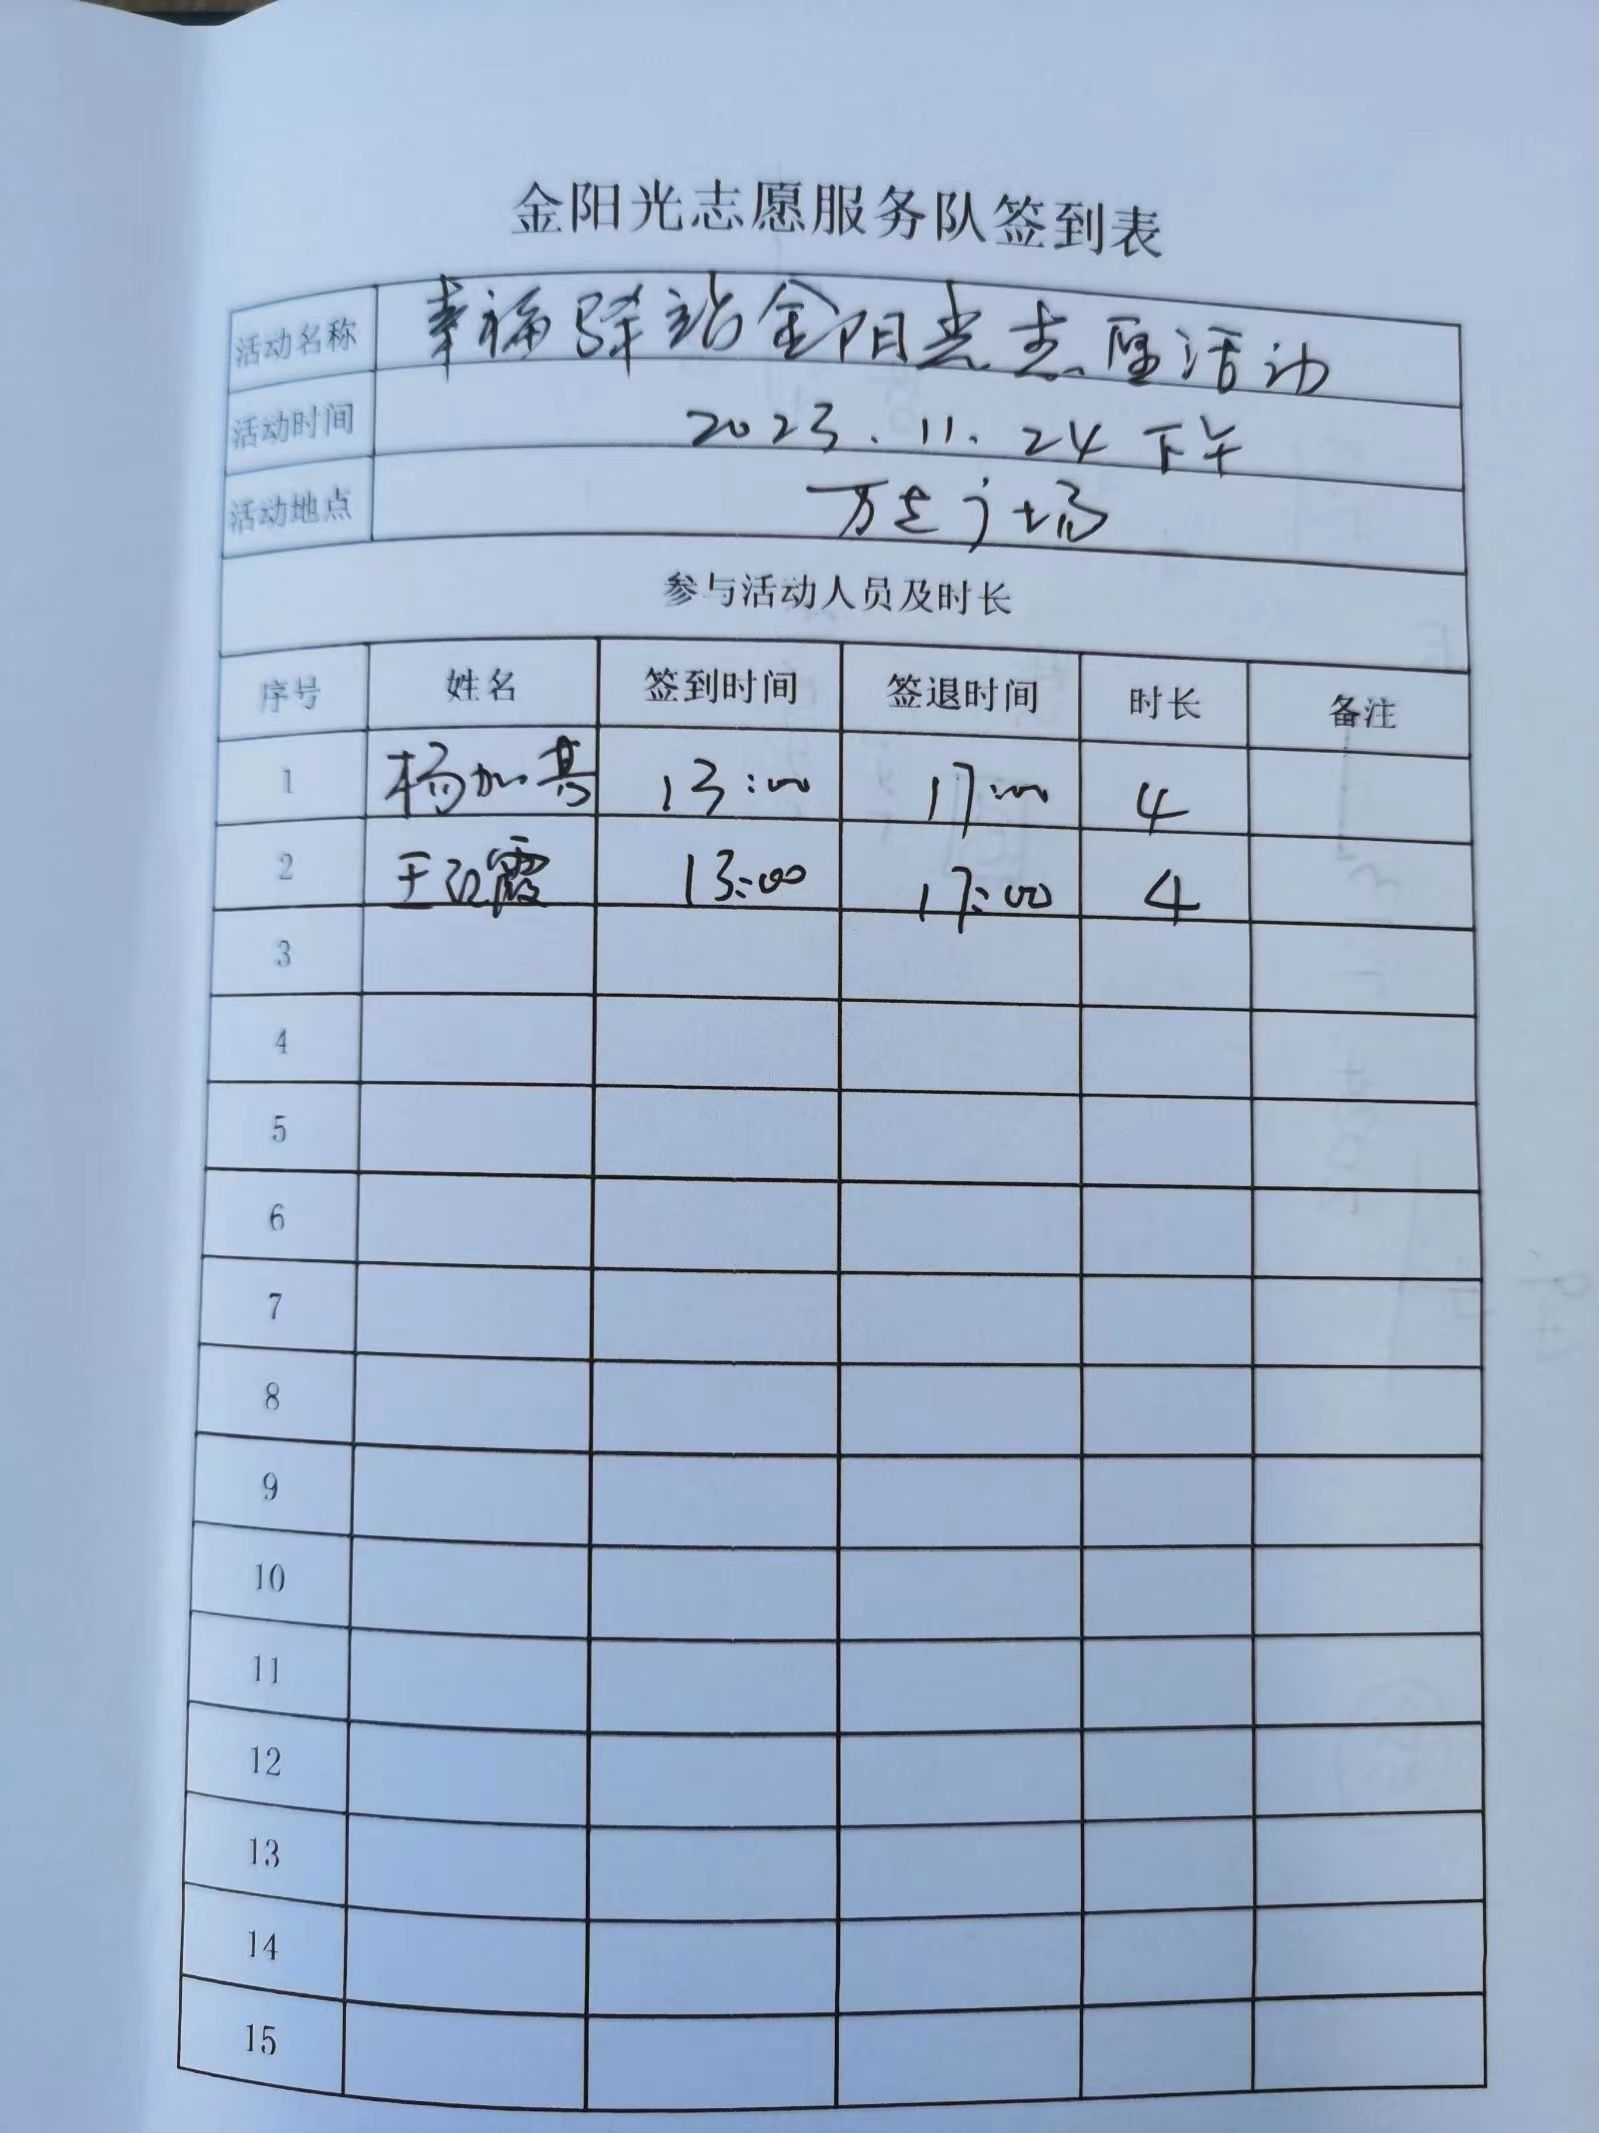 金阳光志愿服务队签到表
活动名称 幸福驿站金阳光志愿活动
活动时间 2023.11.24下午
活动地点 万达广场
参与活动人员及时长
序号 姓名 签到时间 签退时间 时长 备注
1 杨加 13:00 17:00 4
2 王红霞 13:00 17:00 4
3
4
5
6
7
8
9
10
11
12
13
14
15